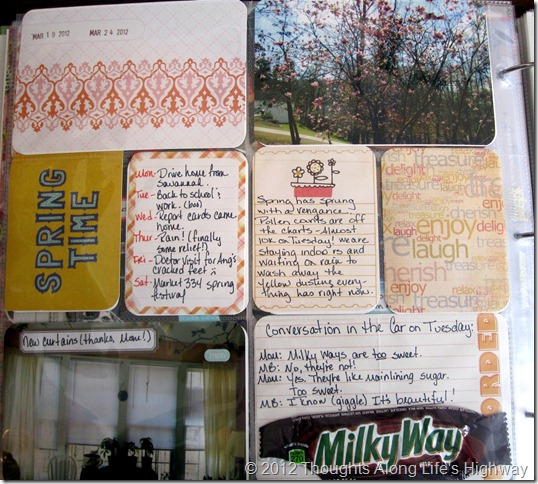 MAR 19 2012 MAR 24 2012
SPRING
TIME
Mon- Drive home from
Savannah.
Tue- Back to school &
work. (boo)
Wed- Report cards came
home.
Thur- Rain! (finally
some relief!)
Fri- Doctor visit for Ang's
cracked feet :(
Sat- Market 334 spring
festival
Spring has sprung
with a vengeance.
Pollen counts are off
the charts - Almost
10K on Tuesday! We are
staying indoors and
waiting on rain to
wash away the
yellow dusting every-
thing has right now.
treasure
delight
enjoy
love
laugh
cherish
enjoy
delight
treasure
laugh
New curtains (thanks, Mom!)
Conversation in the Car on Tuesday:
Mom: Milky Ways are too sweet.
MB: No, they're not!
Mom: Yes. They're like mainlining sugar.
Too sweet.
MB: I know (giggle) It's beautiful!
ORDER
270
MilkyWay
© 2012 Thoughts Along Life's Highway